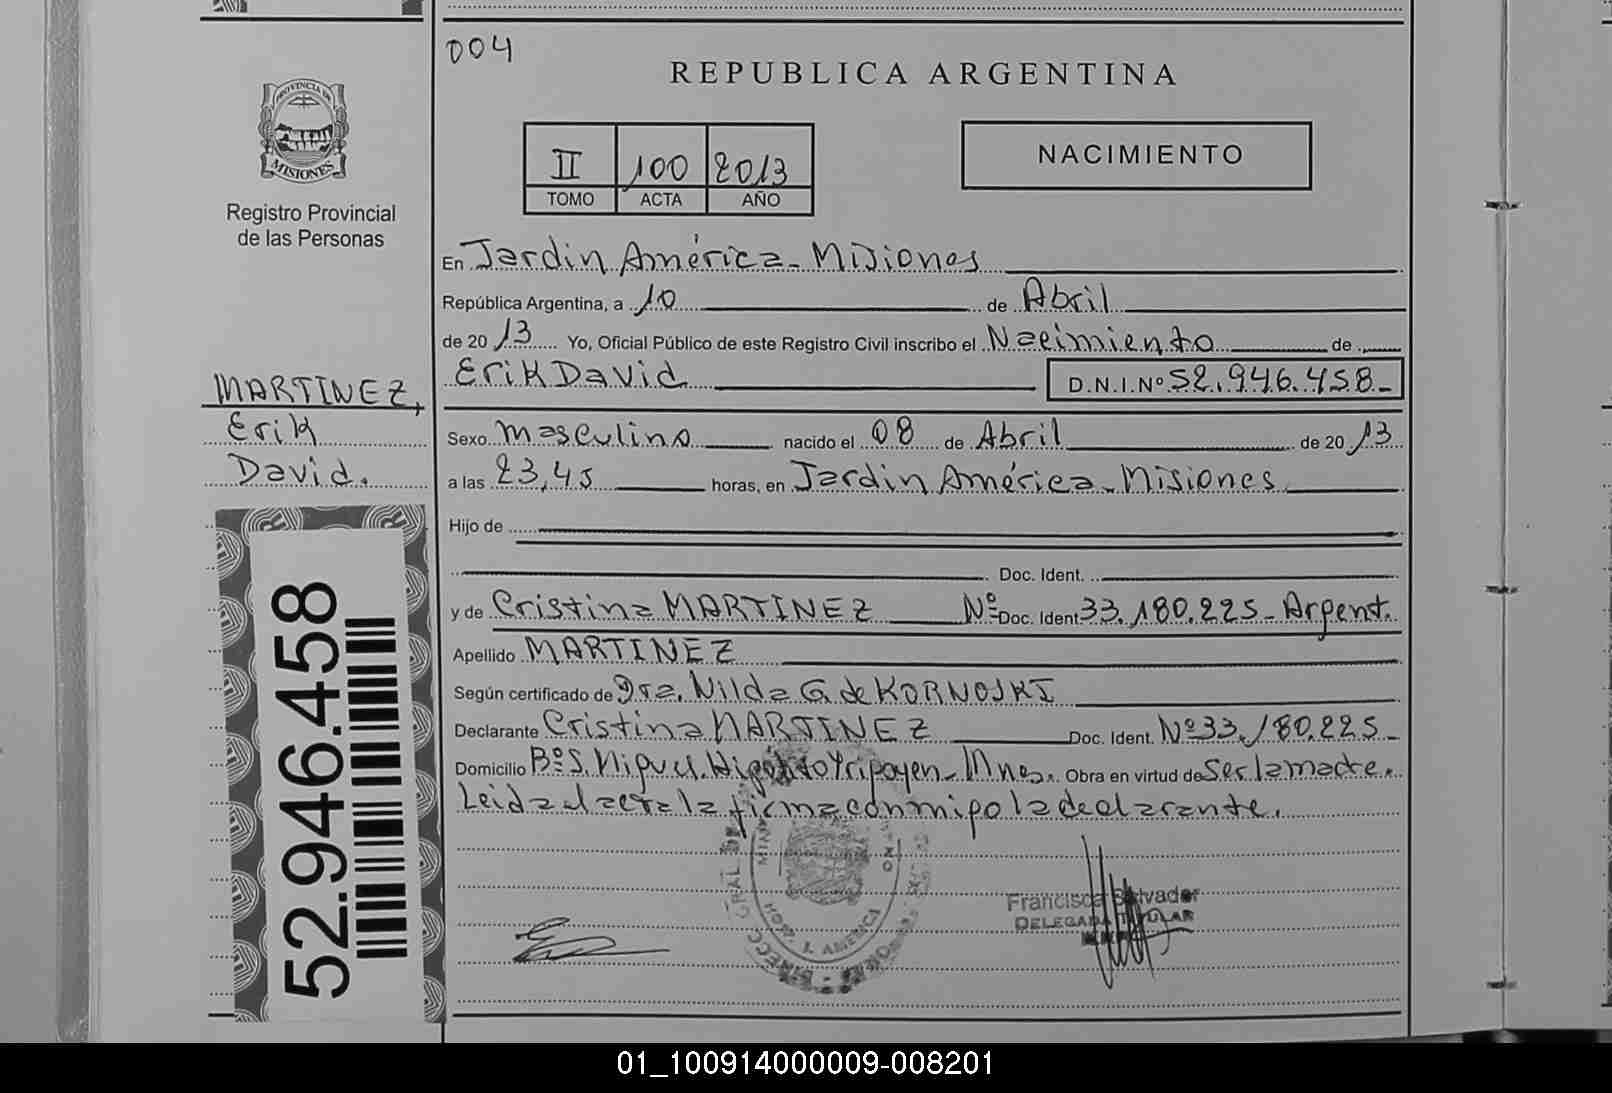 004
REPUBLICA ARGENTINA
PROVINCIA DE
MISIONES
Registro Provincial
de las Personas
II 100 2013
TOMO ACTA AÑO
NACIMIENTO
En Jardin América - Misiones
República Argentina, a 10 de Abril
de 2013 Yo, Oficial Público de este Registro Civil inscribo el Nacimiento de
Erik David D.N.I.Nº 52.946.458-
MARTINEZ,
Erik
David.
Sexo masculino nacido el 08 de Abril de 2013
a las 23,45 horas, en Jardin América - Misiones
Hijo de
Doc. Ident.
y de Cristina MARTINEZ Nº Doc. Ident 33.180.225 - Argent.
Apellido MARTINEZ
Según certificado de Dra. Nilda G. de KORNOSKI
Declarante Cristina MARTINEZ Doc. Ident. Nº 33.180.225-
Domicilio Bº S. Miguel. Hipólito Yrigoyen - Mnes. Obra en virtud de Ser la madre.
Leida el acta la firma conmigo la declarante.
52.946.458
Francisca Salvador
DELEGADA TITULAR
01_100914000009-008201